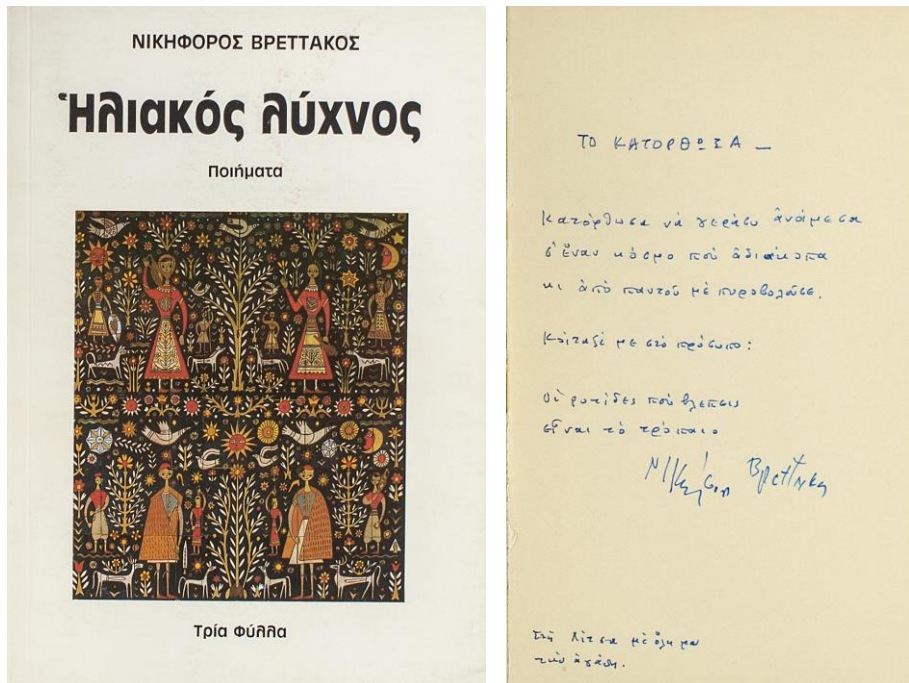 ΝΙΚΗΦΟΡΟΣ ΒΡΕΤΤΑΚΟΣ
Ἡλιακός λύχνος
Ποιήματα
Τρία Φύλλα
ΤΟ ΚΑΤΟΡΘΩΣΑ —
Κατόρθωσα νά γεράσω ἀνάμεσα
σ' ἕναν κόσμο πού ἀδιάκοπα
κι ἀπό παντοῦ μέ πυροβολοῦσε.
Κοίταξέ με στό πρόσωπο:
Οἱ ρυτίδες πού βλέπεις
εἶναι τό τρόπαιο
Νικηφόρος Βρεττάκος
Στή Λίτσα μέ ὅλη μου
τήν ἀγάπη.